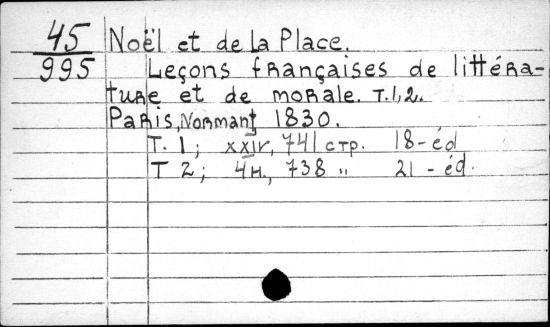 45 Noël et de la Place.
995 Leçons françaises de littéra-
ture et de morale. T.1,2.
Paris, Normant 1830.
T. 1; xxiv, 741 стр. 18-éd
T 2; 4н., 738 " 21 - éd.